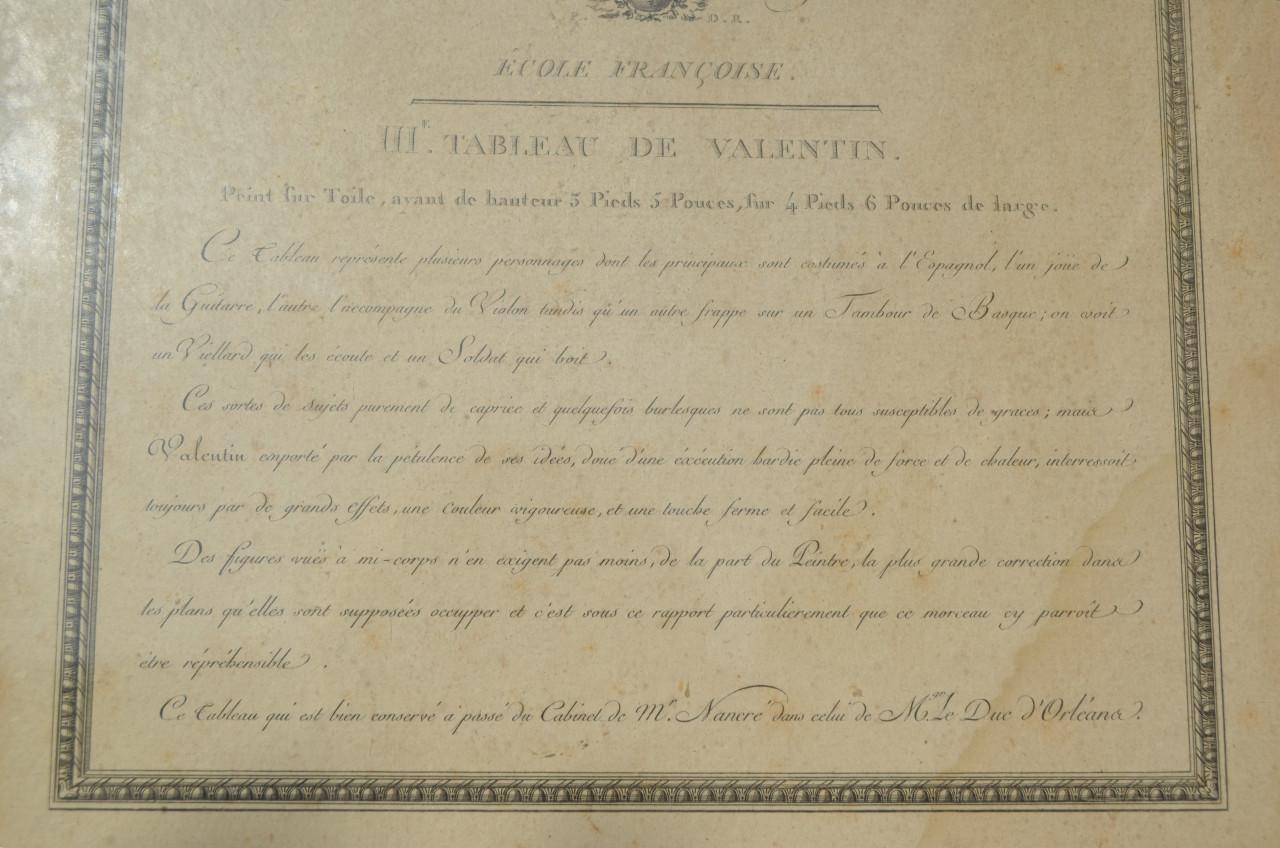 D.R.
ÉCOLE FRANÇOISE.
IIIᵉ. TABLEAU DE VALENTIN.
Peint sur Toile, ayant de hauteur 3 Pieds 5 Pouces, sur 4 Pieds 6 Pouces de large.
Ce Tableau représente plusieurs personnages dont les principaux sont costumés à l'Espagnol, l'un joüe de
la Guitarre, l'autre l'accompagne du Violon tandis qu'un autre frappe sur un Tambour de Basque; on voit
un Viellard qui les écoute et un Soldat qui boit.
Ces sortes de sujets purement de caprice et quelquefois burlesques ne sont pas tous susceptibles de graces; mais
Valentin emporté par la pétulence de ses idées, doué d'une éxécution hardie pleine de force et de chaleur, interressoit
toujours par de grands effets, une couleur vigoureuse, et une touche ferme et facile.
Des figures vuës à mi-corps n'en éxigent pas moins, de la part du Peintre, la plus grande correction dans
les plans qu'elles sont supposées occupper et c'est sous ce rapport particulièrement que ce morceau cy parroît
être répréhensible.
Ce Tableau qui est bien conservé à passé du Cabinet de Mʳ. Nancré dans celui de M.ᵍʳ Le Duc d'Orléans.